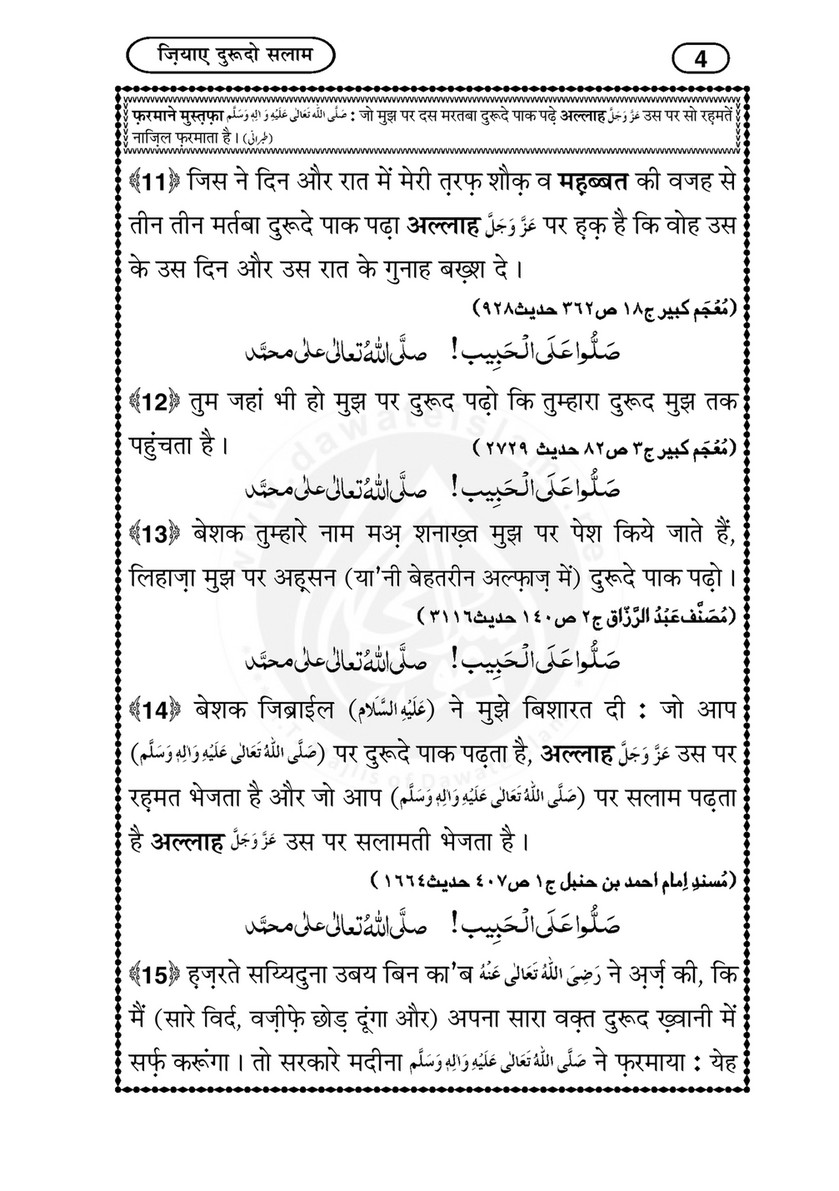 ज़ियाए दुरूदो सलाम
4
फ़रमाने मुस्त़फ़ा صَلَّى اللهُ تَعَالٰى عَلَيْهِ وَاٰلِهٖ وَسَلَّم : जो मुझ पर दस मरतबा दुरूदे पाक पढ़े अल्लाह عَزَّوَجَلَّ उस पर सो रह़मतें
नाज़िल फ़रमाता है। (طبرانی)
﴾11﴿ जिस ने दिन और रात में मेरी त़रफ़ शौक़ व मह़ब्बत की वजह से
तीन तीन मर्तबा दुरूदे पाक पढ़ा अल्लाह عَزَّوَجَلَّ पर ह़क़ है कि वोह उस
के उस दिन और उस रात के गुनाह बख़्श दे ।
(مُعْجَم کبیر ج۱۸ ص۳۶۲ حدیث۹۲۸)
صَلُّوا عَلَى الْحَبِيب! صلَّى اللهُ تعالٰى على محمَّد
﴾12﴿ तुम जहां भी हो मुझ पर दुरूद पढ़ो कि तुम्हारा दुरूद मुझ तक
पहुंचता है । (مُعْجَم کبیر ج۳ ص۸۲ حدیث ۲۷۲۹)
صَلُّوا عَلَى الْحَبِيب! صلَّى اللهُ تعالٰى على محمَّد
﴾13﴿ बेशक तुम्हारे नाम मअ़ शनाख़्त मुझ पर पेश किये जाते हैं,
लिहाज़ा मुझ पर अह़्सन (या'नी बेहतरीन अल्फ़ाज़ में) दुरूदे पाक पढ़ो ।
(مُصَنَّف عَبْدُ الرَّزَّاق ج۲ ص۱۴۰ حدیث۳۱۱۶)
صَلُّوا عَلَى الْحَبِيب! صلَّى اللهُ تعالٰى على محمَّد
﴾14﴿ बेशक जिब्राईल (عَلَيْهِ السَّلَام) ने मुझे बिशारत दी : जो आप
(صَلَّى اللهُ تَعَالٰى عَلَيْهِ وَاٰلِهٖ وَسَلَّم) पर दुरूदे पाक पढ़ता है, अल्लाह عَزَّوَجَلَّ उस पर
रह़मत भेजता है और जो आप (صَلَّى اللهُ تَعَالٰى عَلَيْهِ وَاٰلِهٖ وَسَلَّم) पर सलाम पढ़ता
है अल्लाह عَزَّوَجَلَّ उस पर सलामती भेजता है ।
(مُسندِ اِمام احمد بن حنبل ج۱ ص۴۰۷ حدیث۱۶۶۴)
صَلُّوا عَلَى الْحَبِيب! صلَّى اللهُ تعالٰى على محمَّد
﴾15﴿ ह़ज़रते सय्यिदुना उबय बिन का'ब رَضِیَ اللهُ تَعَالٰى عَنْهُ ने अ़र्ज़ की, कि
मैं (सारे विर्द, वज़ीफ़े छोड़ दूंगा और) अपना सारा वक़्त दुरूद ख़्वानी में
सर्फ़ करूंगा । तो सरकारे मदीना صَلَّى اللهُ تَعَالٰى عَلَيْهِ وَاٰلِهٖ وَسَلَّم ने फ़रमाया : येह